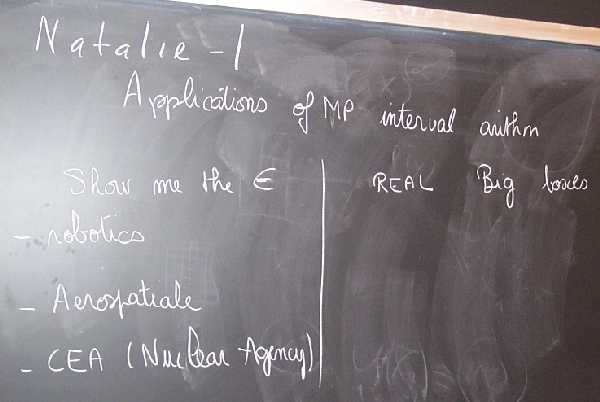 Natalie - 1
Applications of MP interval arithm
Show me the €
- robotics
- Aerospatiale
- CEA (Nuclear Agency)
REAL Big boxes